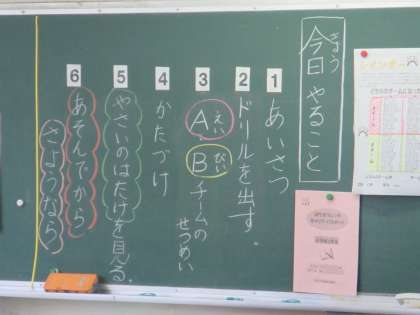 きょう
今日やること
1
あいさつ
2
ドリルを出す。
3
Aえい
Bびい
チームの
せつめい
4
かたづけ
5
やさいのはたけを見る。
6
あそんでから
さようなら